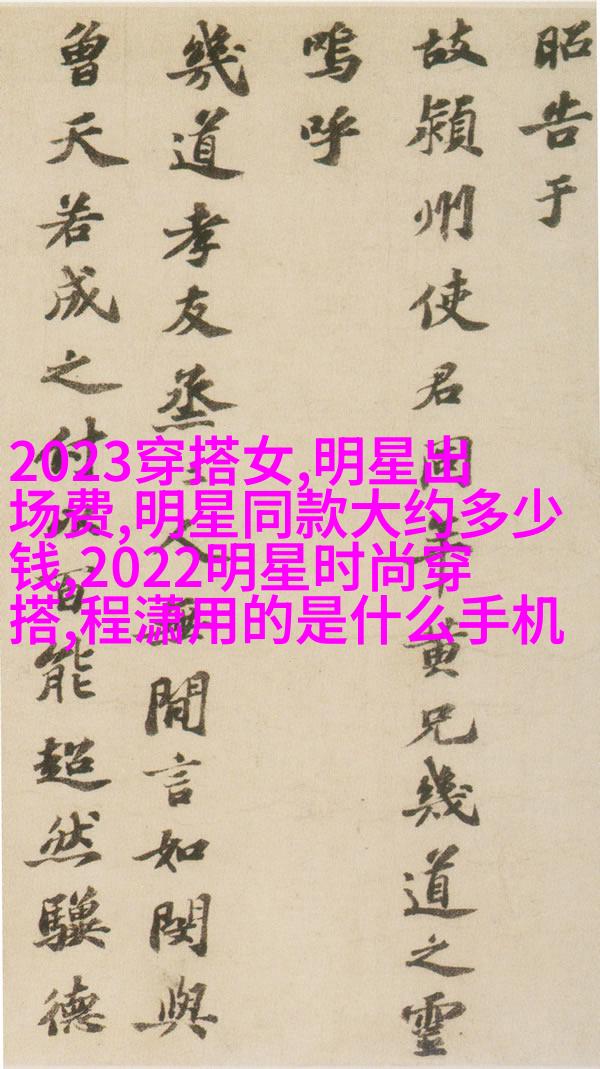 昭告于
故潁州使君同年黄兄幾道之靈
嗚呼
幾道孝友烝人無間言如閔與
曾天若成之付以百能超然驥德
2023穿搭女,明星出
场费,明星同款大约多少
钱,2022明星时尚穿
搭,程潇用的是什么手机